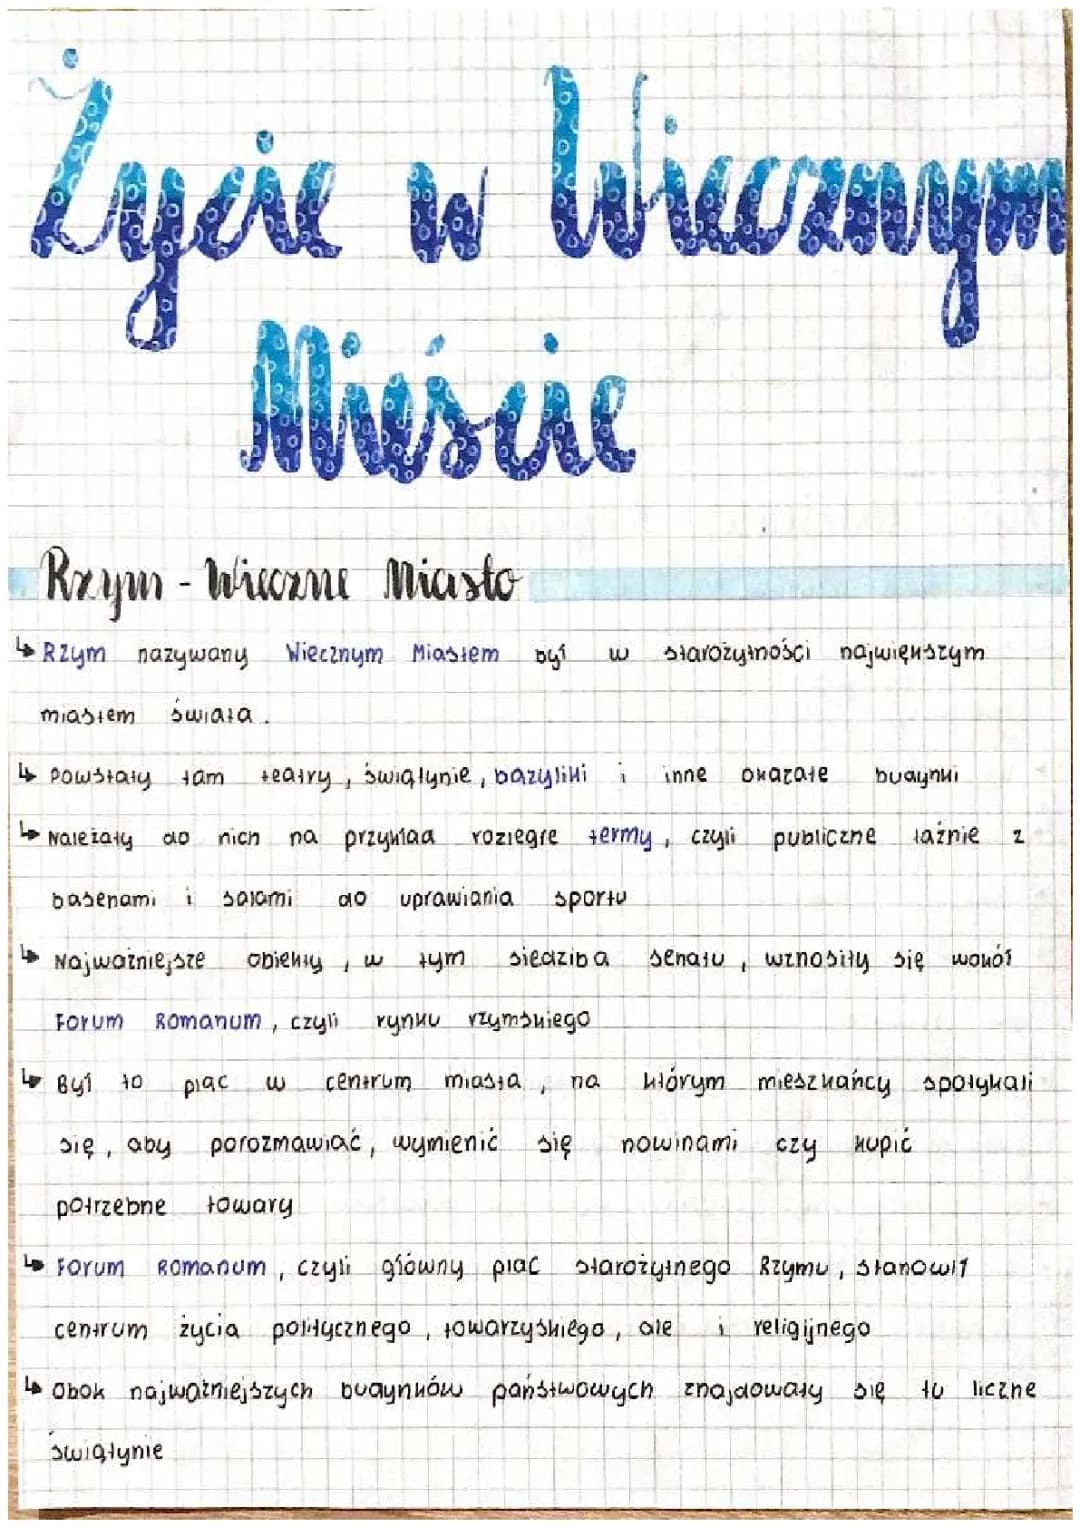 Życie w Wiecznym
Mieście
Rzym - Wieczne Miasto
↳ Rzym nazywany Wiecznym Miastem był w starożytności największym
miastem świata.
↳ Powstały tam teatry, świątynie, bazyliki i inne okazałe budynki
↳ Należały do nich na przykład rozległe termy, czyli publiczne łaźnie z
basenami i salami do uprawiania sportu
↳ Najważniejsze obiekty, w tym siedziba senatu, wznosiły się wokół
Forum Romanum, czyli rynku rzymskiego
↳ Był to plac w centrum miasta, na którym mieszkańcy spotykali
się, aby porozmawiać, wymienić się nowinami czy kupić
potrzebne towary
↳ Forum Romanum, czyli główny plac starożytnego Rzymu, stanowił
centrum życia politycznego, towarzyskiego, ale i religijnego
↳ Obok najważniejszych budynków państwowych znajdowały się tu liczne
świątynie